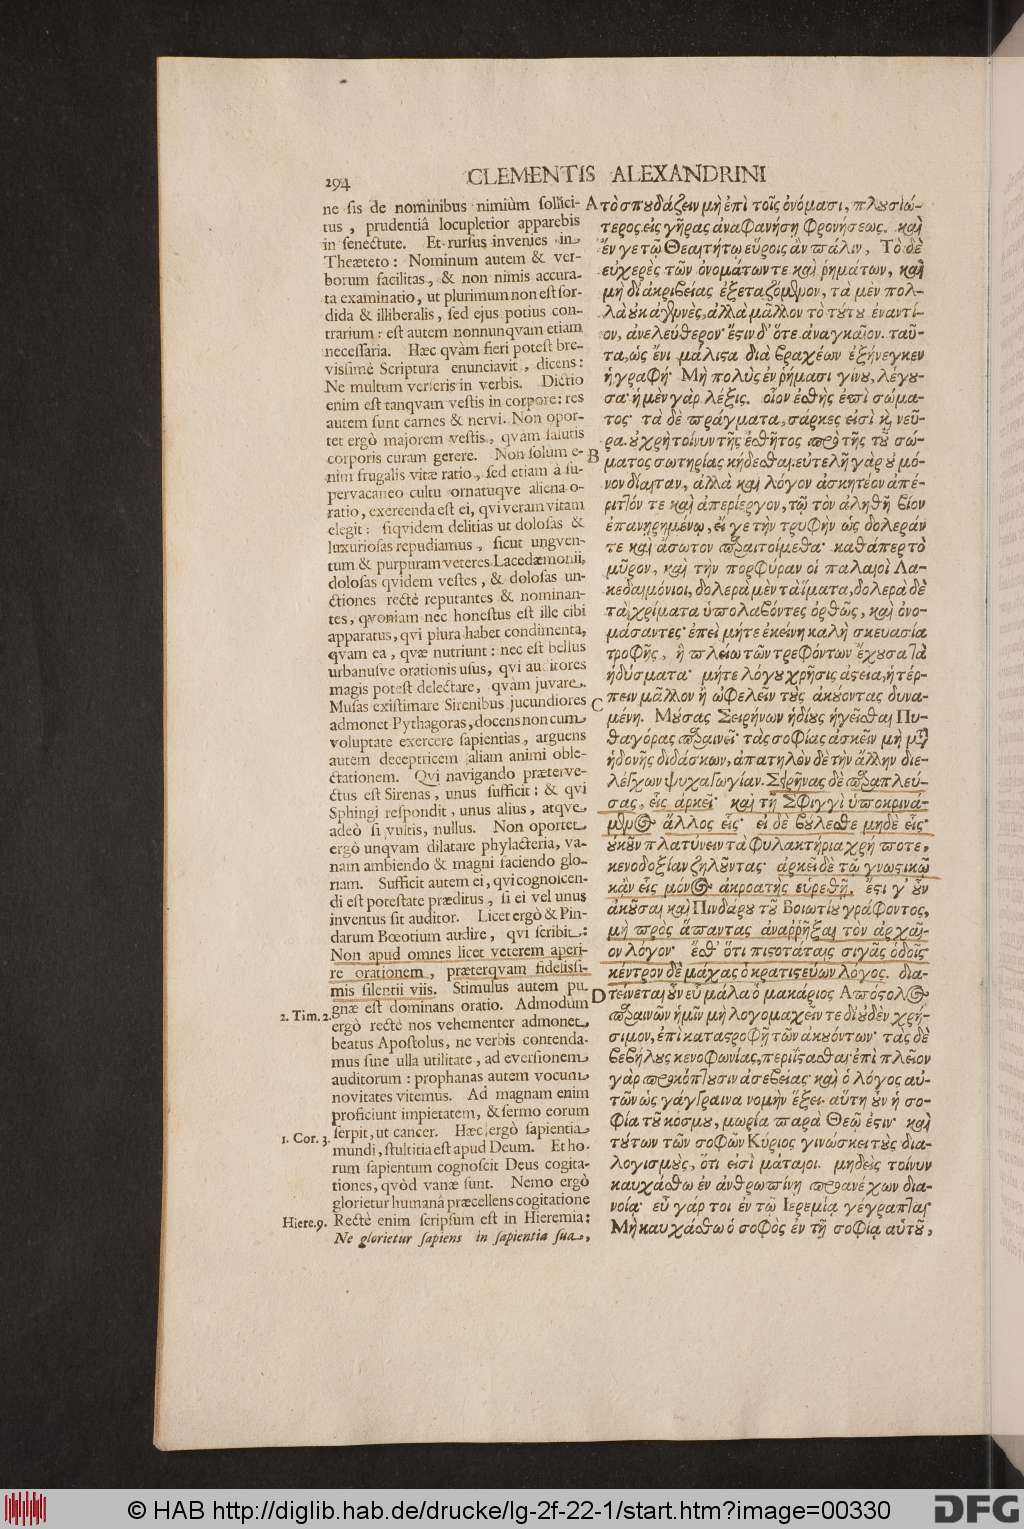 294
CLEMENTIS ALEXANDRINI
ne sis de nominibus nimiùm sollici-
tus, prudentiâ locupletior apparebis
in senectute. Et rursus invenies in
Theæteto: Nominum autem & ver-
borum facilitas, & non nimis accura-
ta examinatio, ut plurimum non est sor-
dida & illiberalis, sed ejus potius con-
trarium: est autem nonnunqvam etiam
necessaria. Hæc qvàm fieri potest bre-
vissimè Scriptura enunciavit, dicens:
Ne multum verseris in verbis. Dictio
enim est tanqvam vestis in corpore: res
autem sunt carnes & nervi. Non opor-
tet ergò majorem vestis, qvàm salutis
corporis curam gerere. Non solum e-
nim frugalis vitæ ratio, sed etiam à su-
pervacaneo cultu ornatuqve aliena o-
ratio, exercenda est ei, qvi veram vitam
elegit: siqvidem delitias ut dolosas &
luxuriosas repudiamus, sicut ungven-
tum & purpuram veteres Lacedæmonii,
dolosas qvidem vestes, & dolosas un-
ctiones rectè reputantes & nominan-
tes, qvoniam nec honestus est ille cibi
apparatus, qvi plura habet condimenta,
qvam ea, qvæ nutriunt: nec est bellus
urbanusve orationis usus, qvi auditores
magis potest delectare, qvàm juvare.
Musas existimare Sirenibus jucundiores
admonet Pythagoras, docens non cum
voluptate exercere sapientias, arguens
autem deceptricem aliam animi oble-
ctationem. Qvi navigando præterve-
ctus est Sirenas, unus sufficit: & qvi
Sphingi respondit, unus alius, atqve
adeò si vultis, nullus. Non oportet
ergò unqvam dilatare phylacteria, va-
nam ambiendo & magni faciendo glo-
riam. Sufficit autem ei, qvi cognoscen-
di est potestate præditus, si ei vel unus
inventus sit auditor. Licet ergò & Pin-
darum Bœotium audire, qvi scribit:
Non apud omnes licet veterem aperi-
re orationem, præterqvam fidelissi-
mis silentii viis. Stimulus autem pu
gnæ est dominans oratio. Admodum
ergò rectè nos vehementer admonet
beatus Apostolus, ne verbis contenda-
mus sine ulla utilitate, ad eversionem
auditorum: prophanas autem vocum
novitates vitemus. Ad magnam enim
proficiunt impietatem, & sermo eorum
serpit, ut cancer. Hæc ergò sapientia
mundi, stultitia est apud Deum. Et ho-
rum sapientum cognoscit Deus cogita-
tiones, qvòd vanæ sunt. Nemo ergò
glorietur humanâ præcellens cogitatione
Rectè enim scripsum est in Hieremia:
Ne glorietur sapiens in sapientia sua,
2. Tim. 2.
1. Cor. 3.
Hiere. 9.
A
B
C
D
τὸ σπουδάζειν μὴ ἐπὶ τοῖς ὀνόμασι, πλουσιώ-
τερος εἰς γῆρας ἀναφανήσῃ φρονήσεως. καὶ
ἔν γε τῷ Θεαιτήτῳ εὕροις ἂν πάλιν, Τὸ δὲ
εὐχερὲς τῶν ὀνομάτων τε καὶ ῥημάτων, καὶ
μὴ δι' ἀκριβείας ἐξεταζόμενον, τὰ μὲν πολ-
λὰ οὐκ ἀγεννὲς, ἀλλὰ μᾶλλον τὸ τούτου ἐναντί-
ον, ἀνελεύθερον· ἔστιν δ' ὅτε ἀναγκαῖον. ταῦ-
τα, ὡς ἔνι μάλιστα διὰ βραχέων ἐξήνεγκεν
ἡ γραφή· Μὴ πολὺς ἐν ῥήμασι γίνου, λέγου-
σα· ἡ μὲν γὰρ λέξις. οἷον ἐσθὴς ἐπὶ σώμα-
τος· τὰ δὲ πράγματα, σάρκες εἰσὶ καὶ νεῦ-
ρα. οὐ χρὴ τοίνυν τῆς ἐσθῆτος πρὸ τῆς τοῦ σώ-
ματος σωτηρίας κήδεσθαι. εὐτελῆ γὰρ οὐ μό-
νον δίαιταν, ἀλλὰ καὶ λόγον ἀσκητέον ἀπέ-
ριττόν τε καὶ ἀπερίεργον, τῷ τὸν ἀληθῆ βίον
ἐπανῃρημένῳ, εἴ γε τὴν τρυφὴν ὡς δολεράν
τε καὶ ἄσωτον παραιτοίμεθα· καθάπερ τὸ
μῦρον, καὶ τὴν πορφύραν οἱ παλαιοὶ Λα-
κεδαιμόνιοι, δολερὰ μὲν τὰ εἵματα, δολερὰ δὲ
τὰ χρίματα ὑπολαβόντες ὀρθῶς, καὶ ὀνο-
μάσαντες· ἐπεὶ μήτε ἐκείνη καλὴ σκευασία
τροφῆς, ἡ πλείω τῶν τρεφόντων ἔχουσα τὰ
ἡδύσματα· μήτε λόγου χρῆσις ἀστεία, ἡ τέρ-
πειν μᾶλλον ἢ ὠφελεῖν τοὺς ἀκούοντας δυνα-
μένη. Μούσας Σειρήνων ἡδίους ἡγεῖσθαι Πυ-
θαγόρας παραινεῖ· τὰς σοφίας ἀσκεῖν μὴ μεθ'
ἡδονῆς διδάσκων, ἀπατηλὸν δὲ τὴν ἄλλην διε-
λέγχων ψυχαγωγίαν. Σειρῆνας δὲ παραπλεύ-
σας, εἷς ἀρκεῖ· καὶ τῇ Σφιγγὶ ὑποκρινά-
μενος ἄλλος εἷς· εἰ δὲ βούλεσθε μηδὲ εἷς·
οὐκοῦν πλατύνειν τὰ φυλακτήρια χρή ποτε,
κενοδοξίαν ζηλοῦντας· ἀρκεῖ δὲ τῷ γνωστικῷ
κἂν εἷς μόνος ἀκροατὴς εὑρεθῇ. ἔστι γ' οὖν
ἀκοῦσαι καὶ Πινδάρου τοῦ Βοιωτίου γράφοντος,
μὴ πρὸς ἅπαντας ἀναῤῥῆξαι τὸν ἀρχαῖ-
ον λόγον· ἔσθ' ὅτι πιστοτάταις σιγᾶς ὁδοῖς
κέντρον δὲ μάχας ὁ κρατιστεύων λόγος. δια-
τείνεται οὖν εὖ μάλα ὁ μακάριος Ἀπόστολος
παραινῶν ἡμῖν μὴ λογομαχεῖν τε δι' οὐδὲν χρή-
σιμον, ἐπὶ καταστροφῇ τῶν ἀκουόντων· τὰς δὲ
βεβήλους κενοφωνίας, περιΐστασθαι· ἐπὶ πλεῖον
γὰρ προκόπτουσιν ἀσεβείας καὶ ὁ λόγος αὐ-
τῶν ὡς γάγγραινα νομὴν ἕξει. αὕτη οὖν ἡ σο-
φία τοῦ κόσμου, μωρία παρὰ Θεῷ ἐστιν· καὶ
τούτων τῶν σοφῶν Κύριος γινώσκει τοὺς δια-
λογισμοὺς, ὅτι εἰσὶ μάταιοι. μηδεὶς τοίνυν
καυχάσθω ἐν ἀνθρωπίνῃ προανέχων δια-
νοίᾳ· εὖ γάρ τοι ἐν τῷ Ἱερεμίᾳ γέγραπται·
Μὴ καυχάσθω ὁ σοφὸς ἐν τῇ σοφίᾳ αὑτοῦ,
© HAB http://diglib.hab.de/drucke/lg-2f-22-1/start.htm?image=00330
DFG